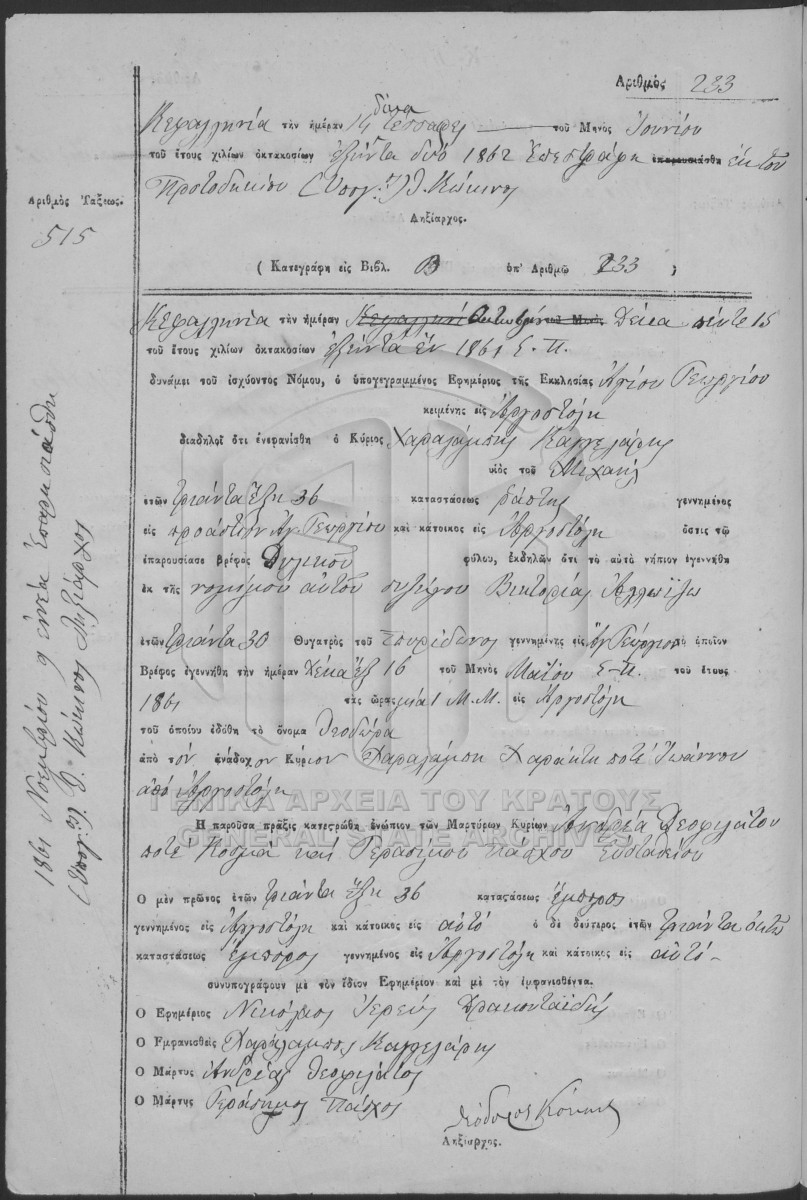 Αριθμὸς 233
Κεφαλληνία τὴν ἡμέραν 14 δεκα τέσσαρες τοῦ Μηνὸς Ἰουνίου
τοῦ ἔτους χιλίων ὀκτακοσίων ἑξήντα δύο 1862 Ἐπεστράφη ἐπαρουσιάσθη ἐκ του
Πρωτοδικείου (Ὑπογ:) Θ. Κώκινος
Ληξίαρχος.
Αριθμὸς Τάξεως.
515
( Κατεγράφη εἰς Βιβλ. Β ὑπ' Ἀριθμῷ 233 )
Κεφαλληνία τὴν ἡμέραν Δέκα πέντε 15
τοῦ ἔτους χιλίων ὀκτακοσίων ἑξήντα ἕν 1861 Ε.Π.
δυνάμει τοῦ ἰσχύοντος Νόμου, ὁ ὑπογεγραμμένος Ἐφημέριος τῆς Ἐκκλησίας Ἁγίου Γεωργίου
κειμένης εἰς Ἀργοστόλη
διαδηλοῖ ὅτι ἐνεφανίσθη ὁ Κύριος Χαραλάμπης Καγγελάρης
υἱὸς τοῦ Μιχαήλ
ἐτῶν τριάντα ἕξη 36 καταστάσεως ράπτης γεννημένος
εἰς προάστιον Ἁγ. Γεωργίου καὶ κάτοικος εἰς Ἀργοστόλη ὅστις τῷ
ἐπαρουσίασε βρέφος Θηλικοῦ φύλου, ἐκδηλῶν ὅτι τὸ αὐτὸ νήπιον ἐγεννήθη
ἐκ τῆς νομίμου αὐτοῦ συζύγου Βικτορίας
ἐτῶν τριάντα 30 Θυγατρὸς τοῦ Σπυρίδωνος γεννημένης εἰς Ἁγ Γεώργιον τὸ ὁποῖον
Βρέφος ἐγεννήθη τὴν ἡμέραν Δέκα ἕξ 16 τοῦ Μηνὸς Μαΐου Ε.Π. τοῦ ἔτους
1861 τὰς ὥρας μία 1 Μ.Μ. εἰς Ἀργοστόλη
τοῦ ὁποίου ἐδόθη τὸ ὄνομα Θεοδώρα
ἀπὸ τὸν ἀνάδοχον Κύριον Χαραλάμπη Χαράκτη ποτέ Ἰωάννου
ἀπό Ἀργοστόλη
ΓΕΝΙΚΑ ΑΡΧΕΙΑ ΤΟΥ ΚΡΑΤΟΥΣ
GENERAL STATE ARCHIVES
Ἡ παροῦσα πρᾶξις κατεστρώθη ἐνώπιον τῶν Μαρτύρων Κυρίων Ἀνδρέα Θεοφιλάτου
ποτέ Κοσμᾶ καί Γερασίμου Πάσχου Εὐσταθίου
Ὁ μὲν πρῶτος ἐτῶν τριάντα ἕξη 36 καταστάσεως ἔμπορος
γεννημένος εἰς Ἀργοστόλη καὶ κάτοικος εἰς αὐτό ὁ δὲ δεύτερος ἐτῶν τριάντα ὀκτώ
καταστάσεως ἔμπορος γεννημένος εἰς Ἀργοστόλη καὶ κάτοικος εἰς αὐτό -
συνυπογράφουν μὲ τὸν ἴδιον Ἐφημέριον καὶ μὲ τὸν ἐμφανισθέντα.
Ὁ Ἐφημέριος Νικόλαος Ἱερεύς Δρακονταϊδής
Ὁ Εμφανισθεὶς Χαράλαμπος Καγγελάρης
Ὁ Μάρτυς Ἀνδρέας Θεοφιλάτος
Ὁ Μάρτυς Γεράσιμος Πάσχος
Θεόδωρος Κώκινος
Ληξίαρχος.
1861 Νοεμβρίου 9 ἐννέα Ἐπαρουσιάσθη
(Ὑπογ:) Θ. Κώκινος Ληξίαρχος